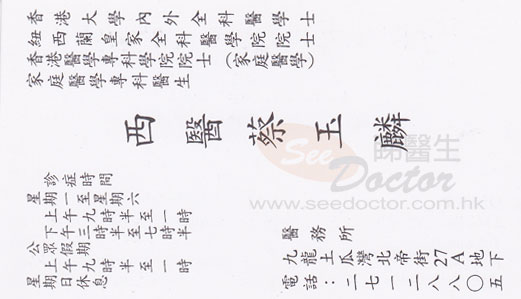 香港大學內外全科醫學士
紐西蘭皇家全科醫學院院士
香港醫學專科學院院士（家庭醫學）
家庭醫學專科醫生
西醫蔡玉麟
See睇醫生
Doctor
www.seedoctor.com.hk
診症時間
星期一至星期六
上午九時半至一時
下午三時半至七時半
公眾假期
上午九時半至一時
星期日休息
醫務所
九龍土瓜灣北帝街27A地下
電話：二七一二八八〇五